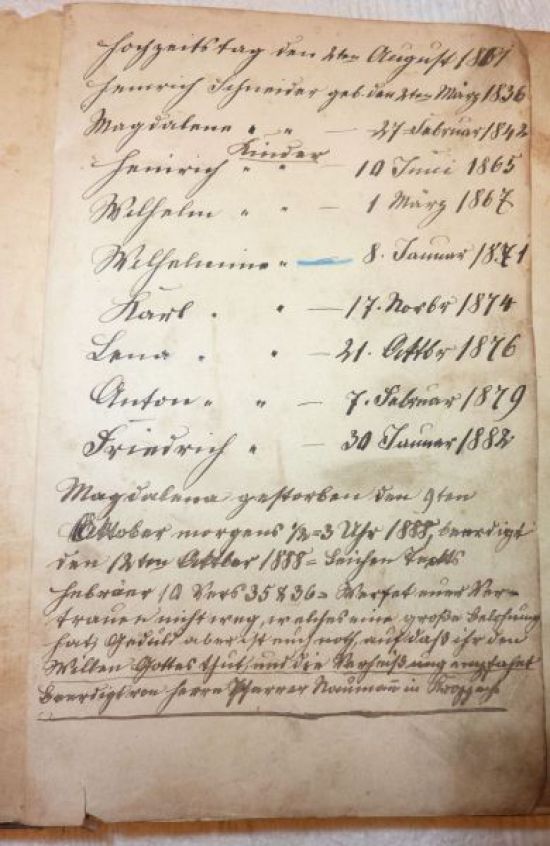 Hochzeitstag den 2ten August 1861
Heinrich Schneider geb den 2ten März 1836
Magdalena " " — 27 Februar 1842
Kinder
Heinrich " " — 10 Juni 1865
Wilhelm " " — 1 März 1867
Wilhelmine " — 8. Januar 1871
Karl " " — 17. Novbr 1874
Lena " " — 21. Oktbr 1876
Anton " " — 7. Februar 1879
Friedrich " — 30 Januar 1882
Magdalena gestorben den 9ten
Oktober morgens 1/2=3 Uhr 1888, beerdigt
den 12ten Oktber 1888 = Leichen Texts
Hebräer 10 Vers 35 & 36 = Werfet euer Ver=
trauen nicht weg, welches eine große Belohnung
hat, Geduld aber ist euch noth, auf daß ihr den
Willen Gottes thut, und die Verheißung empfahet
Beerdigt von Herrn Pfarrer Naumann in